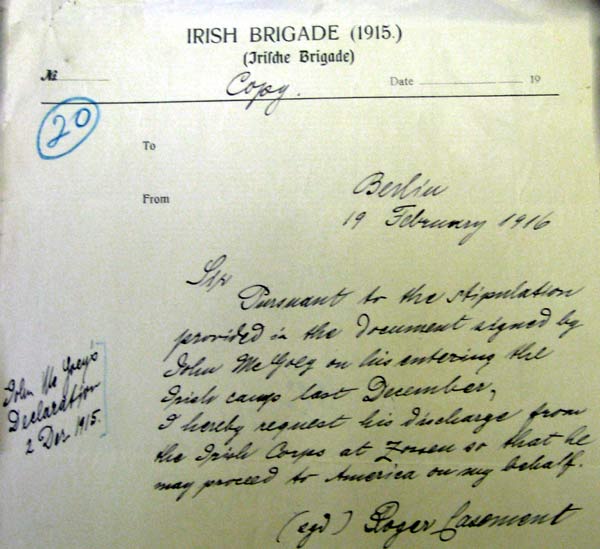 IRISH BRIGADE (1915.)
(Irische Brigade)
№
Copy.
Date 19
20
To
From
Berlin
19 February 1916
Sir
Pursuant to the stipulation
provided in the document signed by
John McGoey on his entering the
Irish camp last December,
I hereby request his discharge from
the Irish Corps at Zossen so that he
may proceed to America on my behalf.
(sgd) Roger Casement
John McGoey's
Declaration
2 Dec 1915.